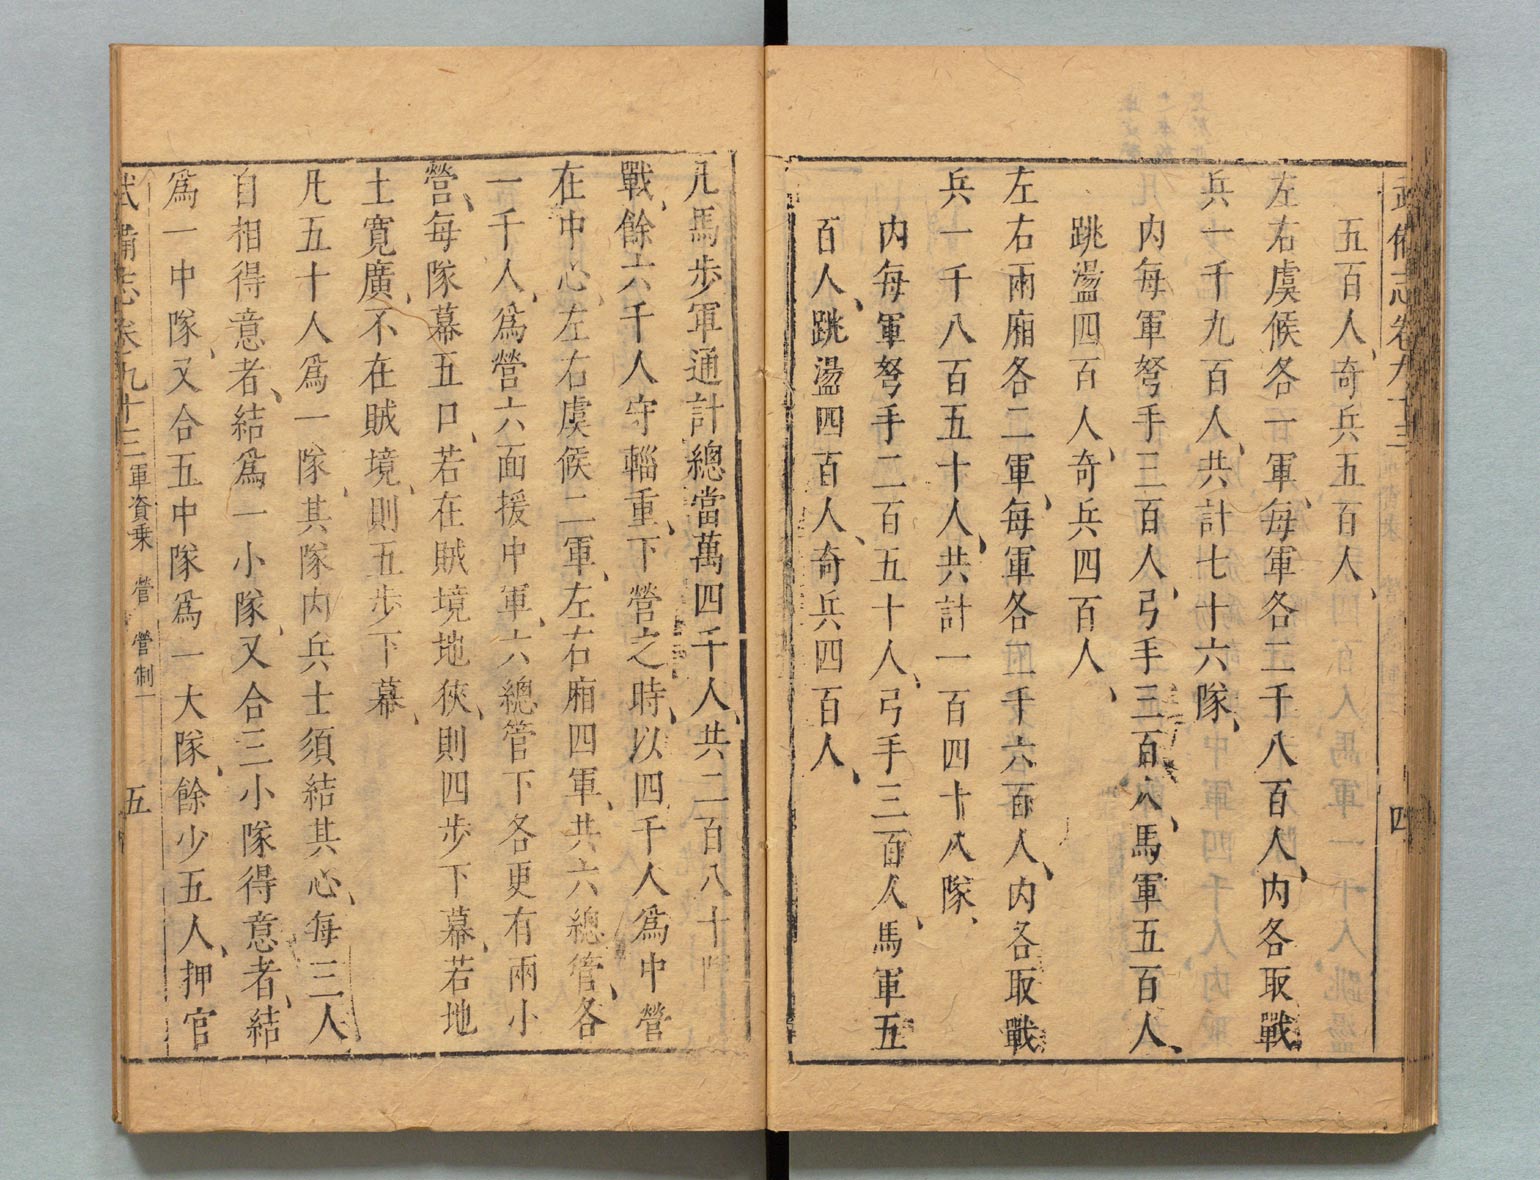 武備志卷九十三
四
五百人、奇兵五百人、
左右虞候各一軍、每軍各二千八百人、內各取戰
兵一千九百人、共計七十六隊、
內每軍弩手三百人、弓手三百人、馬軍五百人、
跳盪四百人、奇兵四百人、
左右兩廂各二軍、每軍各二千六百人、內各取戰
兵一千八百五十人、共計一百四十八隊、
內每軍弩手二百五十人、弓手三百人、馬軍五
百人、跳盪四百人、奇兵四百人、
凡馬步軍通計總當萬四千人、共二百八十隊
戰、餘六千人守輜重、下營之時、以四千人爲中營
在中心、左右虞候二軍、左右廂四軍、共六總管、各
一千人、爲營六面援中軍、六總管下各更有兩小
營、每隊幕五口、若在賊境地狹、則四步下幕、若地
土寬廣、不在賊境、則五步下幕、
凡五十人爲一隊、其隊內兵士須結其心、每三人
自相得意者、結爲一小隊、又合三小隊得意者、結
爲一中隊、又合五中隊爲一大隊、餘少五人、押官
武備志卷九十三 軍資乘 營 營制一
五